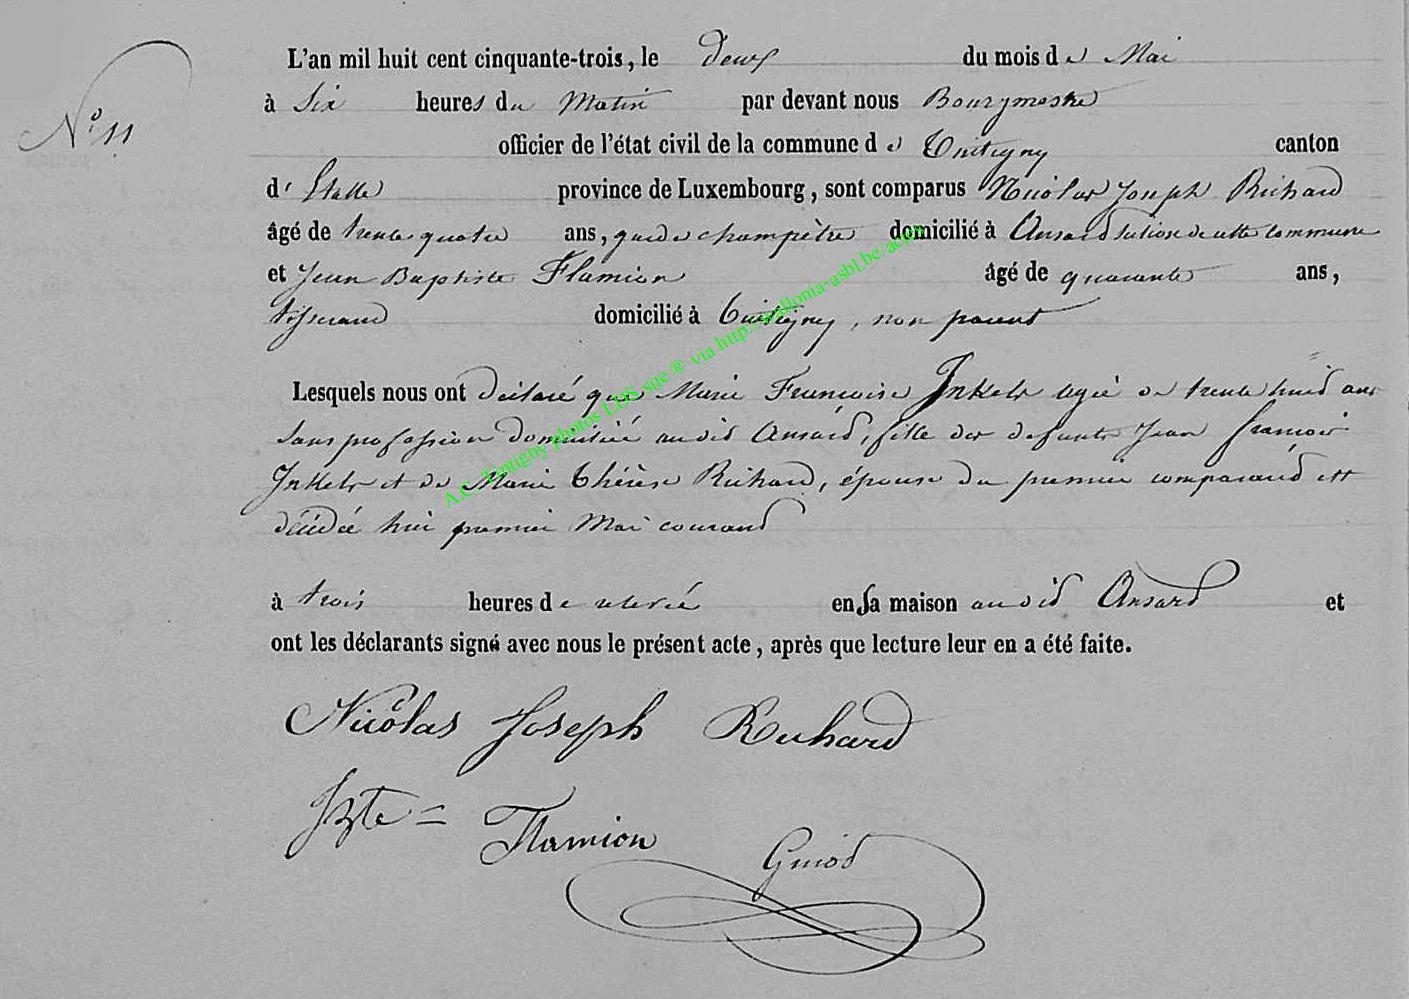 N.° 11
L'an mil huit cent cinquante-trois, le deux du mois de Mai
à Six heures du Matin par devant nous Bourgmestre
officier de l'état civil de la commune de Tintigny canton
d'Etalle province de Luxembourg, sont comparus Nicolas Joseph Richard
âgé de trente quatre ans, garde champètre domicilié à Ansard section de cette commune
et Jean Baptiste Flamion âgé de quarante ans,
tisserand domicilié à Tintigny, non parent
Lesquels nous ont déclaré que Marie Francoise Inkels agée de trente huit ans
sans profession domiciliée audit Ansard, fille des defunts Jean francois
Inkels et de Marie Thérèse Richard, épouse du premier comparant est
décédée hier premier Mai courant
à trois heures de relevée en Sa maison audit Ansard et
ont les déclarants signé avec nous le présent acte, après que lecture leur en a été faite.
Nicolas Joseph Richard
JBte = Flamion
Guiot
A.C. Tintigny photos LDS site ® via http://wallonia-asbl.be/actes